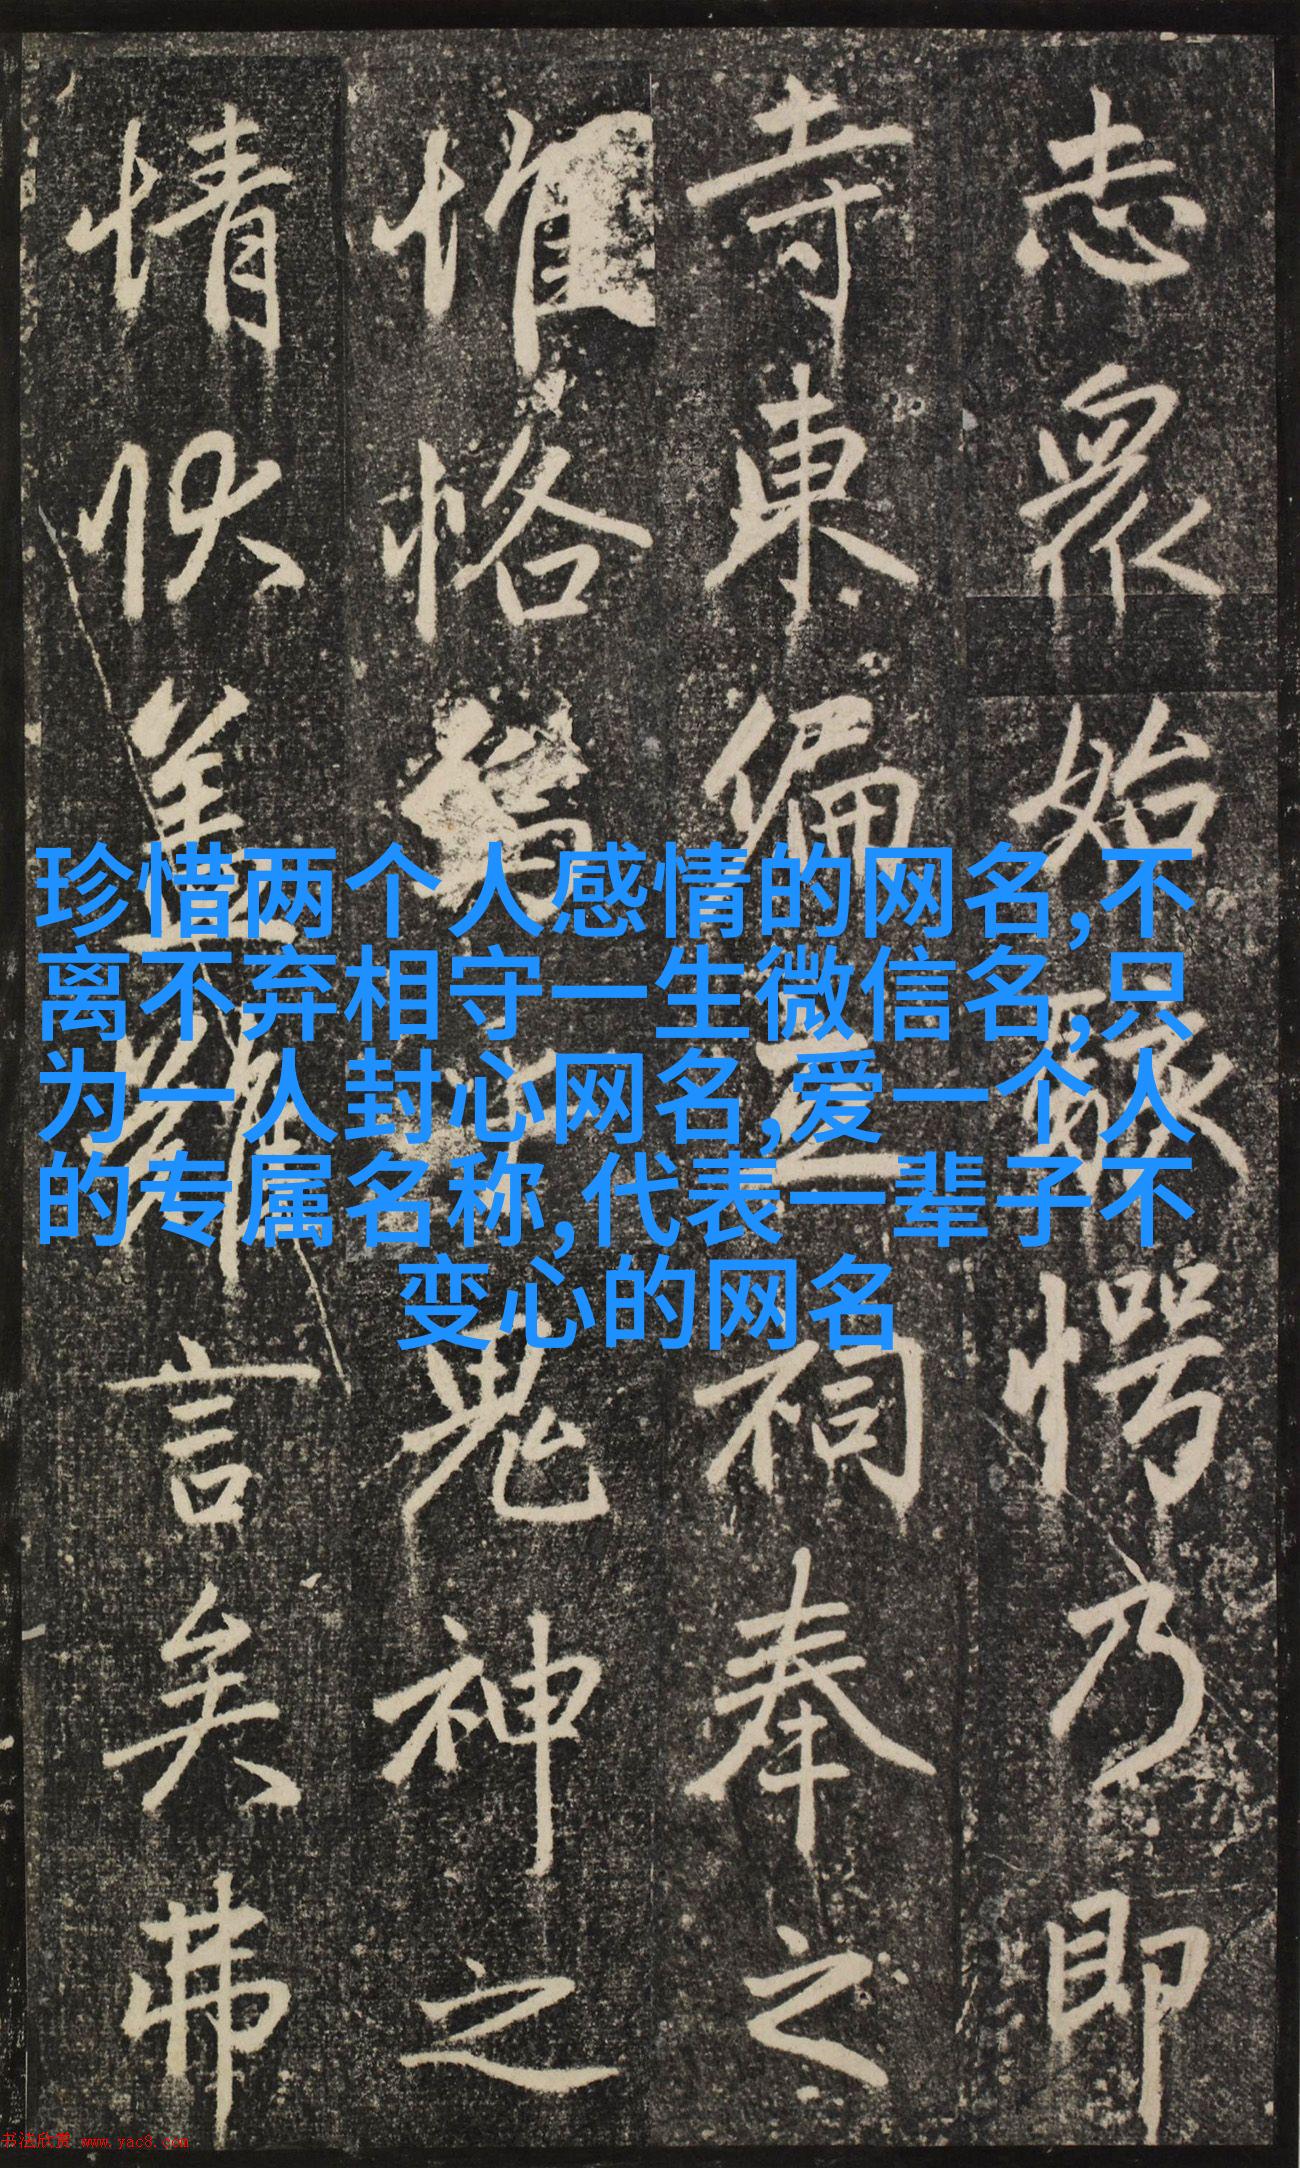 志眾始駭愕乃即
寺東偏立祠奉之
惟恪鬼神之
情狀蓋難言矣弗
珍惜两个人感情的网名,不
离不弃相守一生微信名,只
为一人封心网名,爱一个人
的专属名称,代表一辈子不
变心的网名
书法欣赏 www.yac8.com